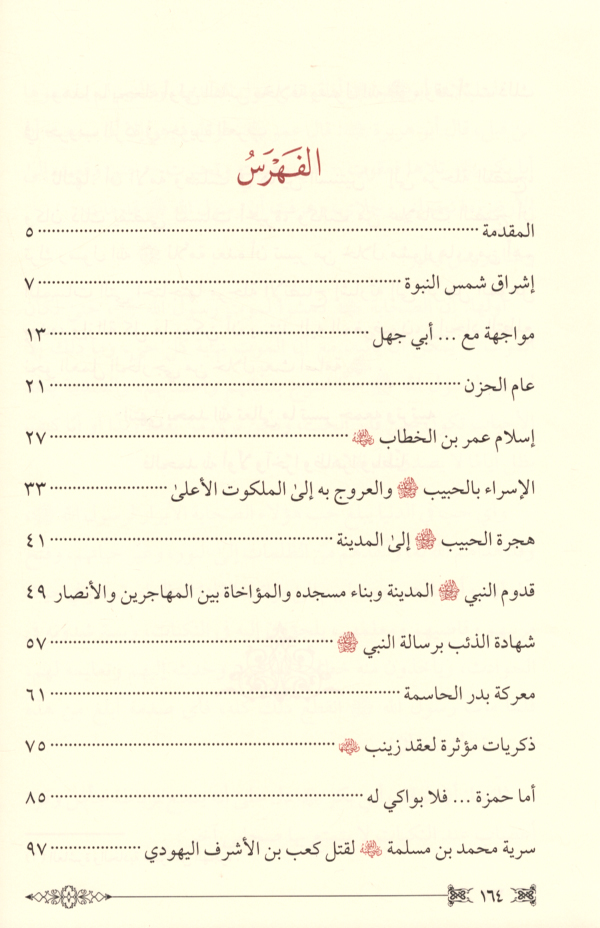 الفَهْرَسُ
المقدمة ........ ٥
إشراق شمس النبوة ........ ٧
مواجهة مع ... أبي جهل ........ ١٣
عام الحزن ........ ٢١
إسلام عمر بن الخطاب ........ ٢٧
الإسراء بالحبيب ﷺ والعروج به إلىٰ الملكوت الأعلىٰ ........ ٣٣
هجرة الحبيب ﷺ إلىٰ المدينة ........ ٤١
قدوم النبي ﷺ المدينة وبناء مسجده والمؤاخاة بين المهاجرين والأنصار ٤٩
شهادة الذئب برسالة النبي ﷺ ........ ٥٧
معركة بدر الحاسمة ........ ٦١
ذكريات مؤثرة لعقد زينب ........ ٧٥
أما حمزة ... فلا بواكي له ........ ٨٥
سرية محمد بن مسلمة لقتل كعب بن الأشرف اليهودي ........ ٩٧
١٦٤